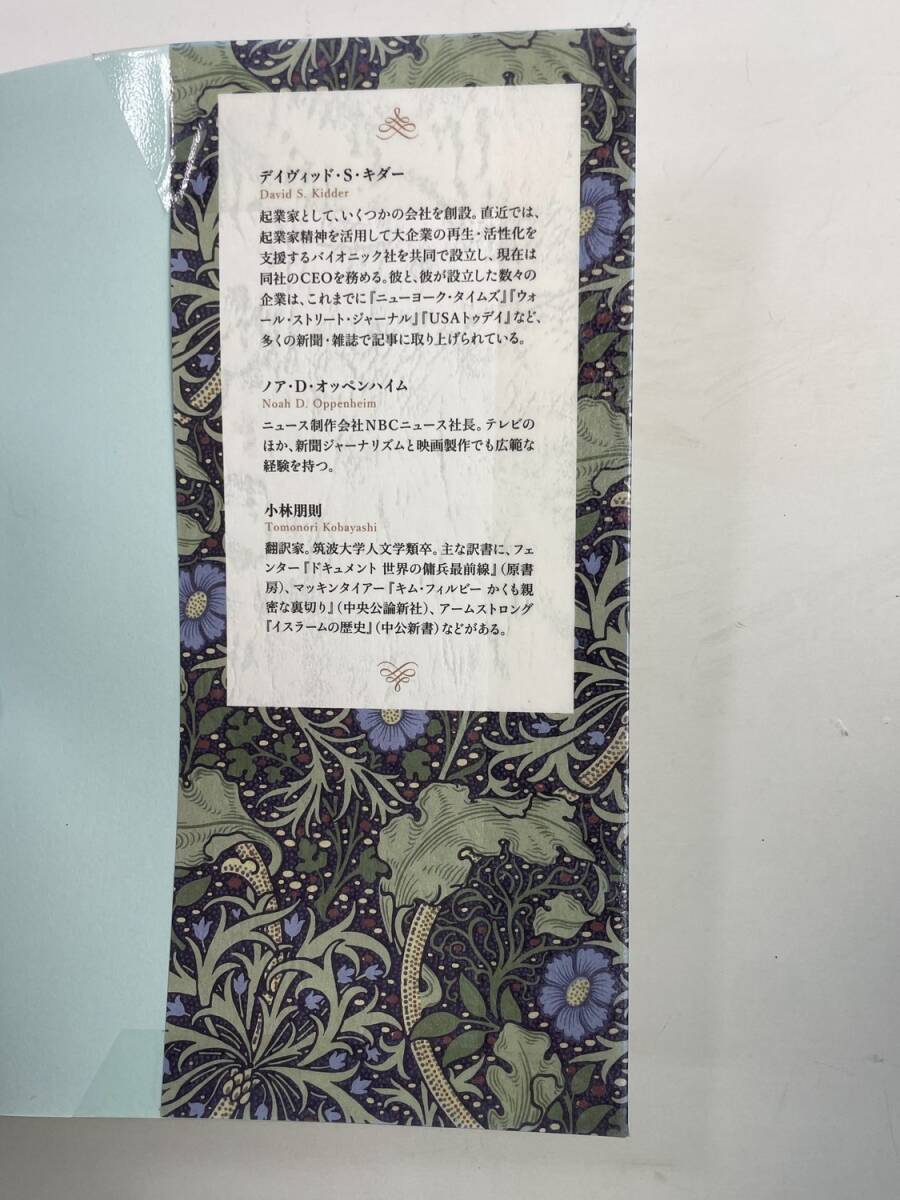 デイヴィッド・S・キダー
David S. Kidder
起業家として、いくつかの会社を創設。直近では、
起業家精神を活用して大企業の再生・活性化を
支援するバイオニック社を共同で設立し、現在は
同社のCEOを務める。彼と、彼が設立した数々の
企業は、これまでに『ニューヨーク・タイムズ』『ウォ
ール・ストリート・ジャーナル』『USAトゥデイ』など、
多くの新聞・雑誌で記事に取り上げられている。
ノア・D・オッペンハイム
Noah D. Oppenheim
ニュース制作会社NBCニュース社長。テレビの
ほか、新聞ジャーナリズムと映画製作でも広範な
経験を持つ。
小林朋則
Tomonori Kobayashi
翻訳家。筑波大学人文学類卒。主な訳書に、フェ
ンター『ドキュメント 世界の傭兵最前線』（原書
房）、マッキンタイアー『キム・フィルビー かくも親
密な裏切り』（中央公論新社）、アームストロング
『イスラームの歴史』（中公新書）などがある。